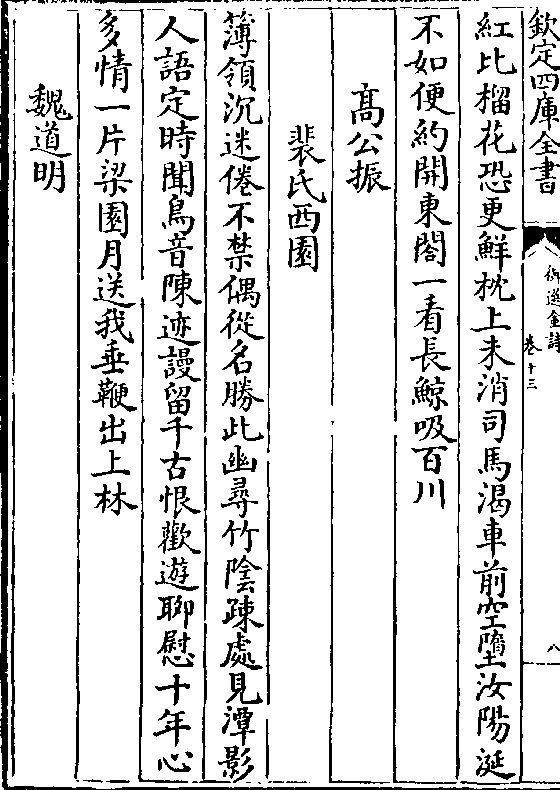 欽定四庫全書
御選金詩
卷十三
八
紅比榴花恐更鮮枕上未消司馬渴車前空墮汝陽涎
不如便約開東閤一看長鯨吸百川
髙公振
裴氏西園
簿領沉迷倦不禁偶從名勝此幽尋竹陰疎處見潭影
人語定時聞鳥音陳迹謾留千古恨歡遊聊慰十年心
多情一片梁園月送我垂鞭出上林
魏道明